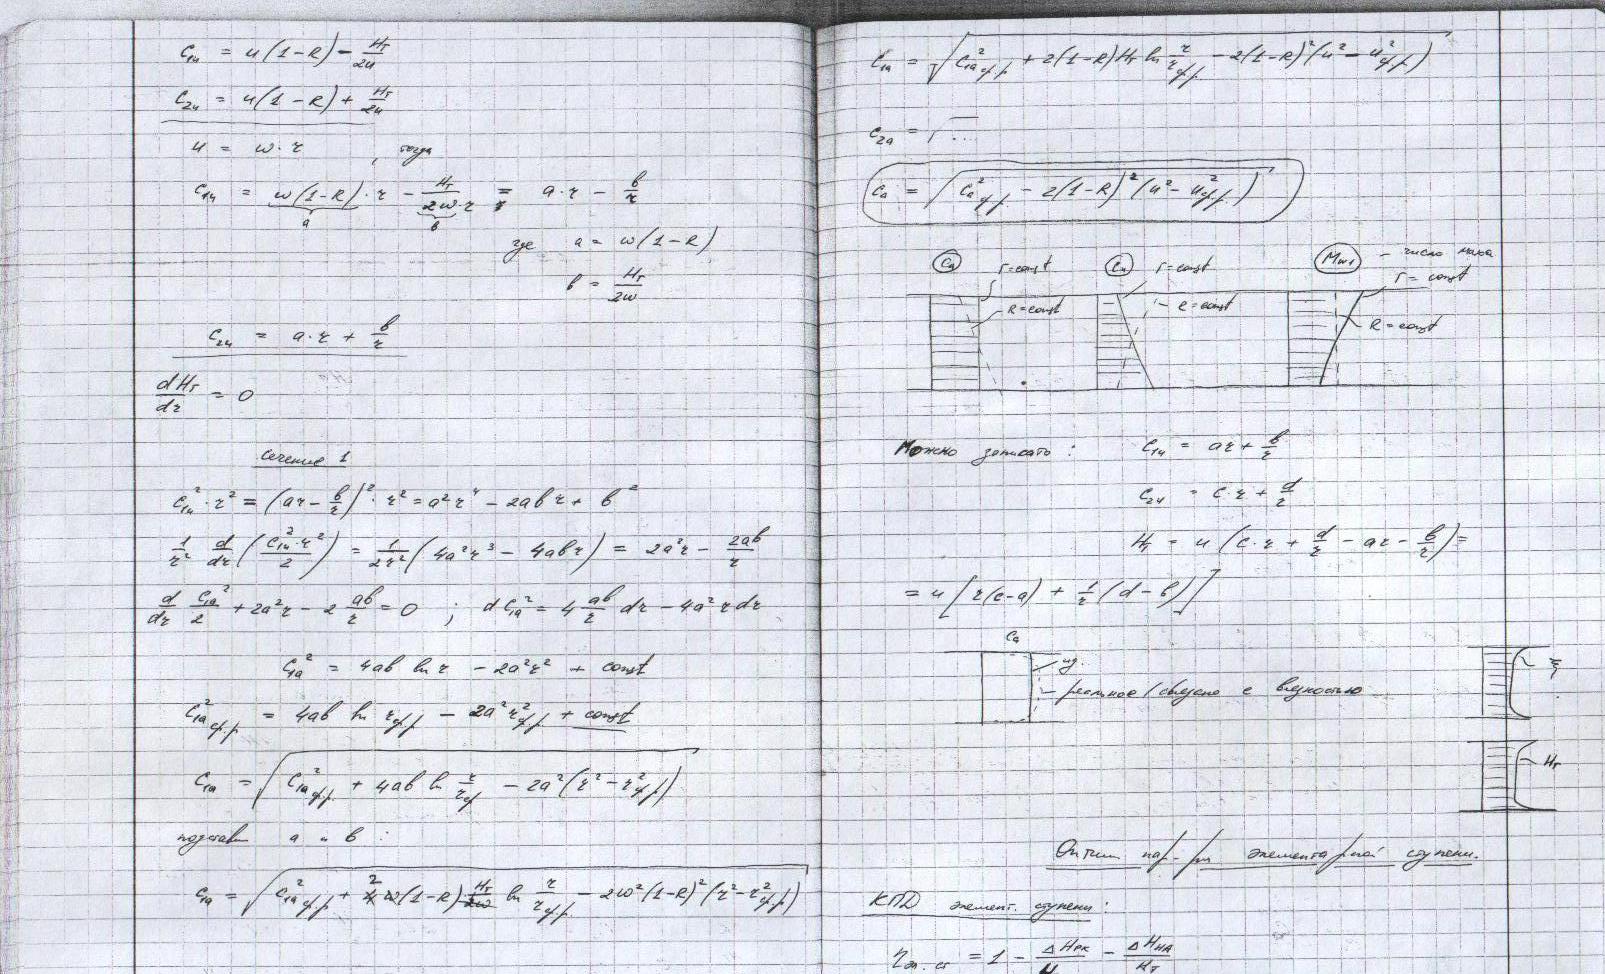 c₁ᵤ = u(1-R) - Hт/2u
c₂ᵤ = u(1-R) + Hт/2u
u = ω·r , тогда
c₁ᵤ = ω(1-R)·r - Hт/2ω·r = a·r - в/r
a в
где a = ω(1-R)
в = Hт/2ω
c₂ᵤ = a·r + в/r
dHт/dr = 0
сечение 1
c₁ᵤ²·r² = (ar - в/r)²·r² = a²r⁴ - 2aвr + в²
1/r² d/dr (c₁ᵤ²·r²/2) = 1/2r² (4a²r³ - 4aвr) = 2a²r - 2aв/r
d/dr c₁ₐ²/2 + 2a²r - 2 aв/r = 0 ; dc₁ₐ² = 4 aв/r dr - 4a²r dr
c₁ₐ² = 4aв ln r - 2a²r² + const
c₁ₐ²ср.р = 4aв ln rср.р - 2a²r²ср.р + const
c₁ₐ = √(c₁ₐ²ср.р + 4aв ln r/rср - 2a²(r² - r²ср.р))
подставим a и в :
c₁ₐ = √(c₁ₐ²ср.р + 2(1-R) Hт ln r/rср.р - 2ω²(1-R)²(r² - r²ср.р))
c₁ₐ = √(c₁ₐ²ср.р + 2(1-R)Hт ln r/rср.р - 2(1-R)²(u² - u²ср.р))
c₂ₐ = √...
cₐ = √(cₐ²ср.р - 2(1-R)²(u² - u²ср.р))
cₐ Г=const cᵤ Г=const Mw₁ - число маха
Г=const
R=const R=const R=const
Можно записать : c₁ᵤ = ar + в/r
c₂ᵤ = c·r + d/r
Hт = u (c·r + d/r - ar - в/r) =
= u [r(c-a) + 1/r (d-в)]
cₐ
ид.
реальное (связано с вязкостью
ξ
Hт
Оптим пар-ры элементарной ступени.
КПД элемент. ступени :
ηэл.ст = 1 - ΔHРК/H - ΔHНА/Hт